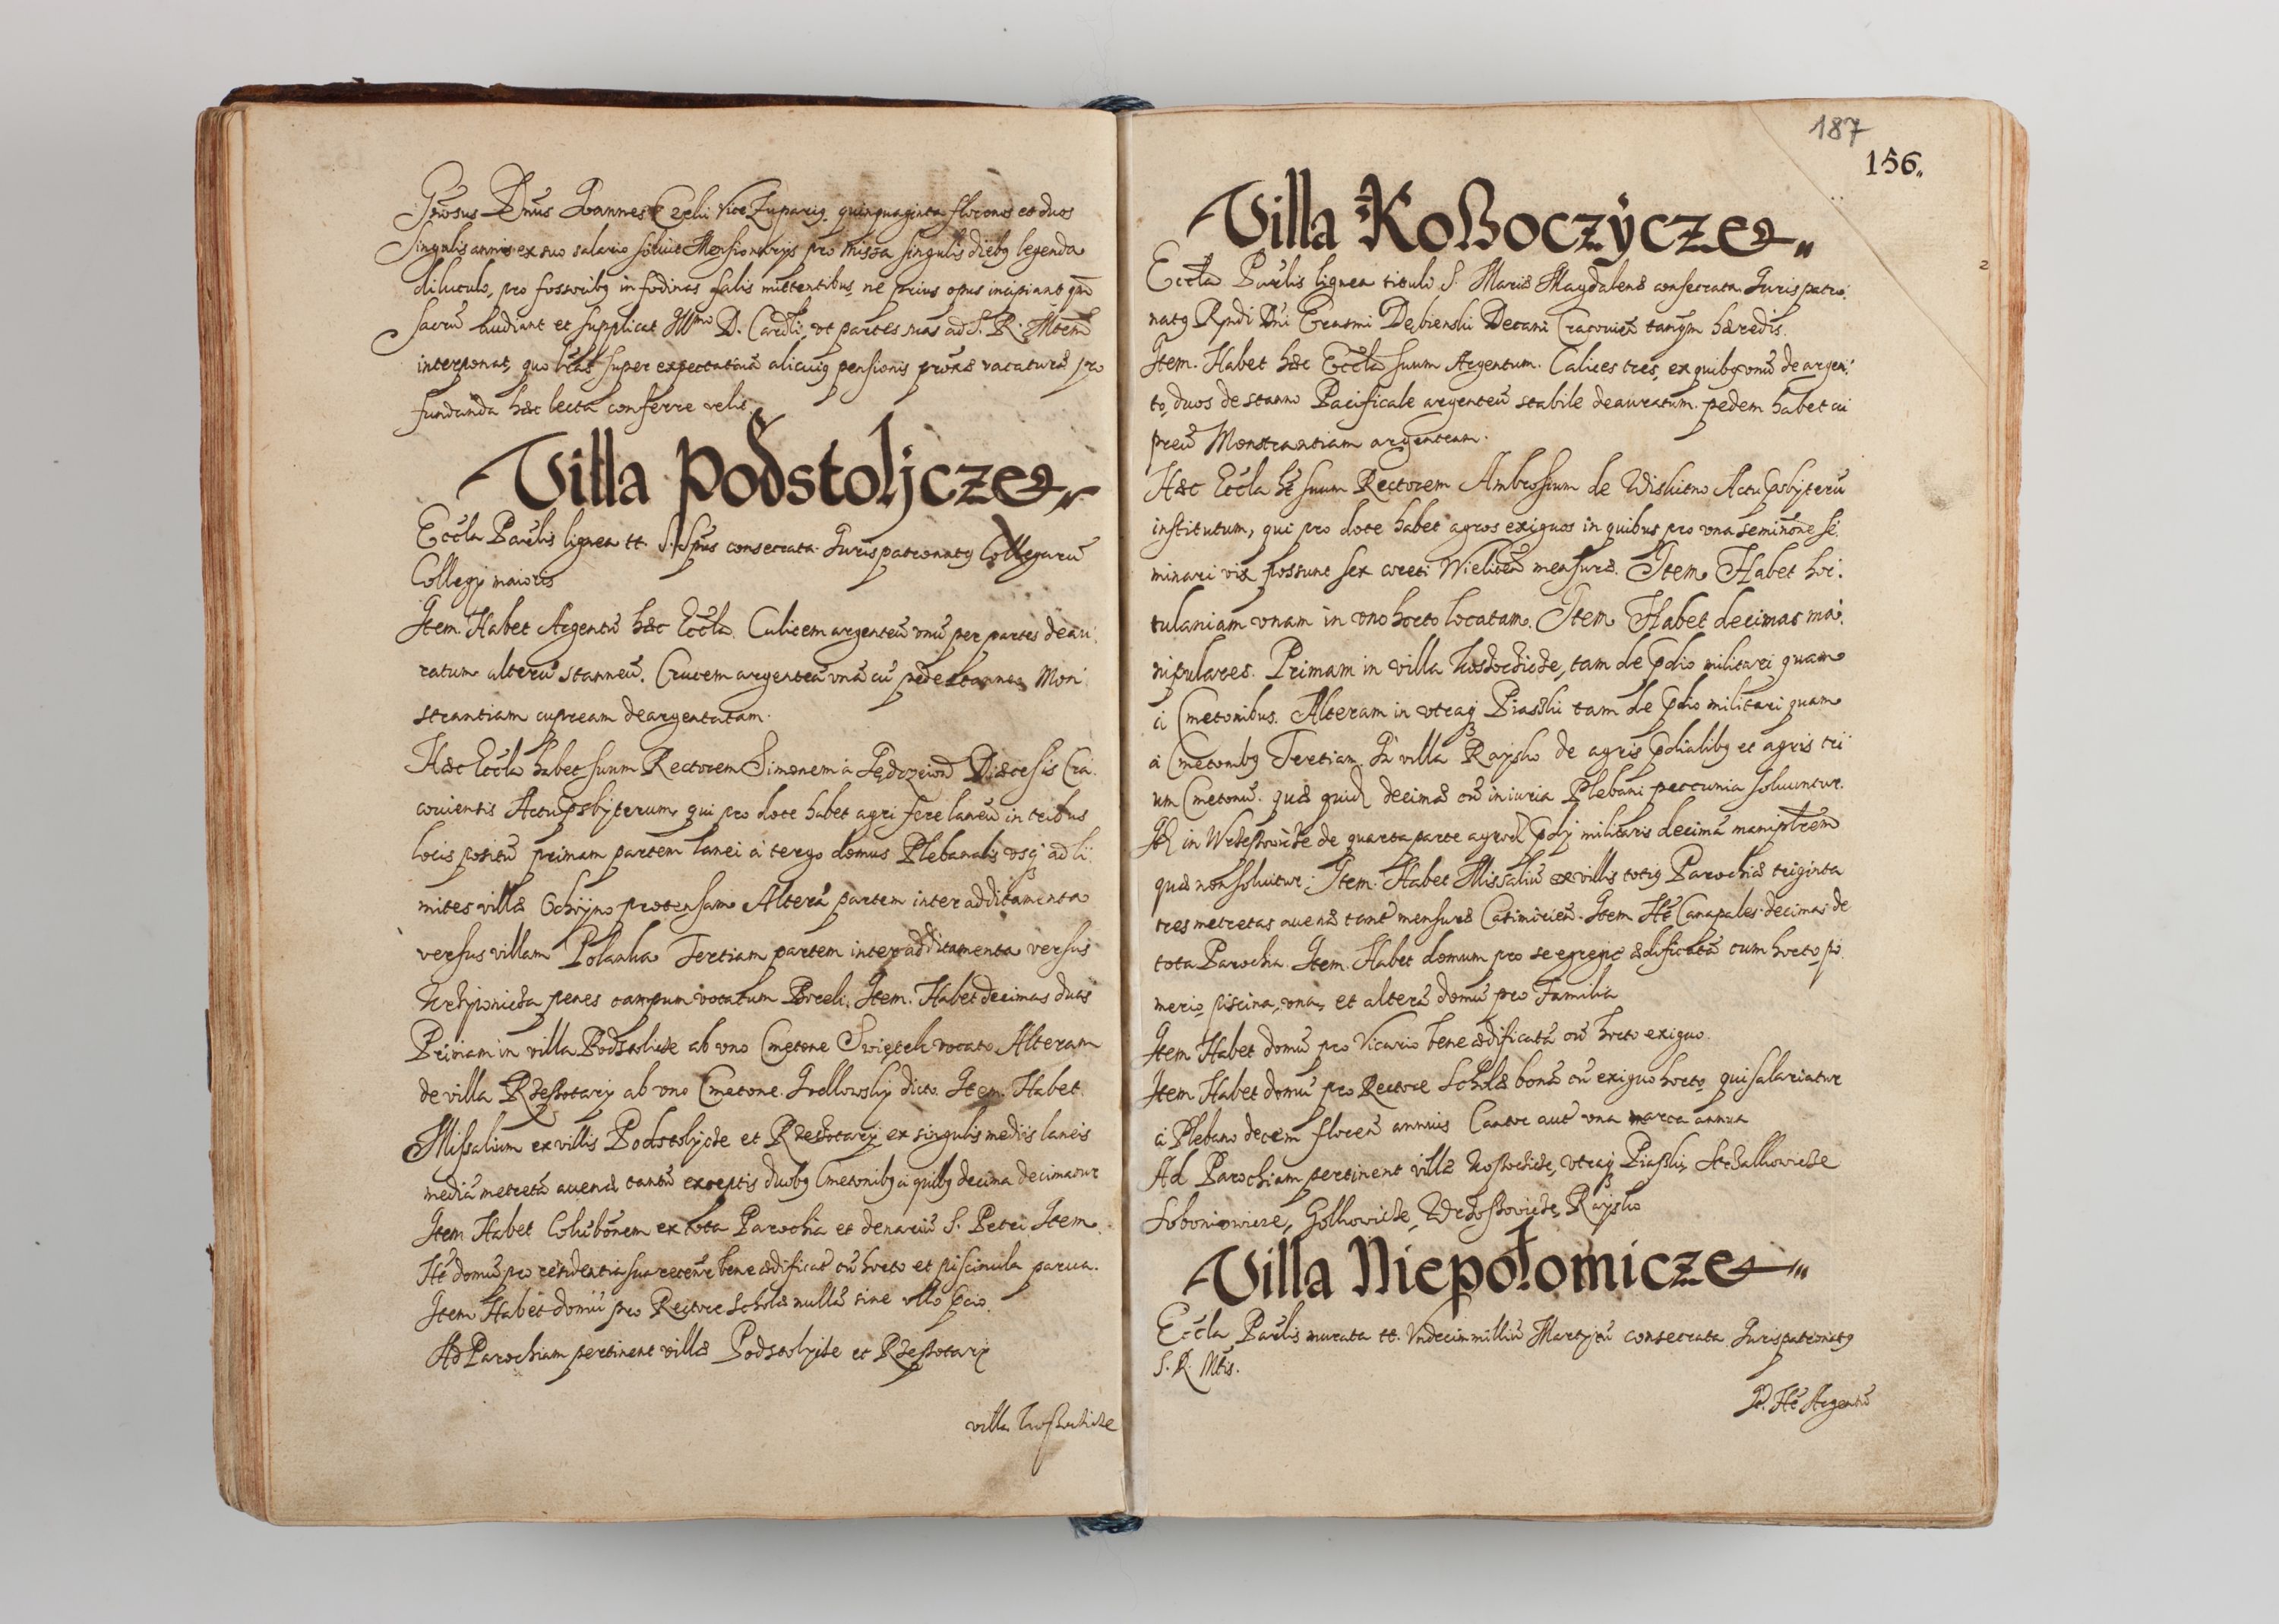 Gnosus Dnus Joannes Czeki Vice Zupariq quinquaginta florenos et duos
singulis annis ex suo salario soluit Mensionarijs pro missa singulis diebq legenda
diluculo, pro fossoribq in fodinas salis mittentibus, ne prius opus incipiant qm
sacru audiant et supplicat Illmo D. Cardli, vt partes suas ad S. R. Mtem
interponat, quo lras super expectatiua alicuiq pensionis proxe vacature pro
fundanda hæc lecta conferre velit.
Villa Podstolycze
Eccla Parlis lignea tt. S. Spus consecrata. Jurispatronatq Collegaru
Collegij maioris
Item Habet Argentu hæc Eccla. Calicem argenteu vnu per partes deau
ratum alteru stanneu. Crucem argenteu vna cu pede stanneo Mon
strantiam cupream deargentatam.
Hæc Eccla habet suum Rectorem Simonem à Diœcesis Cra
couientis Actu psbyterum qui pro dote habet agri fere laneu in tribus
locis positu primam partem lanei à tergo domus Plebanalis vsq ad li
mites villæ Ochoyno protensam Altera partem inter additamenta
versus villam Polanka Tertiam partem inter additamenta versus
penes campum vocatum Porceli. Item. Habet decimas duas
Primam in villa Podstolicze ab vno Cmetone Swiętek vocato Alteram
de villa Rzeszotary ab vno Cmetone dicto. Item. Habet
Missalium ex villis Podstolycze et Rzeszotary ex singulis medijs laneis
media metreta auenæ tantu exceptis duobq Cmetonibq à quibq decima decimatur
Item Habet Columbonem ex tota Parochia et denariu S. Petri. Item
Ht domu pro residentia sua recenr bene ædificat cu horto et piscinula parua.
Item Habet domu pro Rectore scholæ nulla sine vllo pcio.
Ad Parochiam pertinent villæ Podstolycze et Rzeszotary
villa Koszoczicze
187
156.
Villa Koszoczycze
Eccla Parlis lignea tituli S. Mariæ Magdalenæ consecrata Jurispatro
natq Rndi Dni Erasmi Dębienski Decani Cracouien tanqm hæredis.
Item. Habet hæc Eccla suum Argentum. Calices tres, ex quibq vnu de argen
to, duos de stanno Pacificale argenteu stabile deauratum. pedem habet cu
preu Monstrantiam argenteam.
Hæc Eccla ht suum Rectorem Ambrosium de Wislitno Actu psbyteru
institutum, qui pro dote habet agros exiguos in quibus pro vna seminone se
minari vix possunt sex coreti Wielicen mensuræ. Item Habet hor
tulaniam vnam in vno horto locatam. Item Habet decimas ma
nipulares. Primam in villa Koszoczicze, tam de pdio militari quam
à Cmetonibus. Alteram in vtraq Piaski tam de pdio militari quam
à Cmetonibq Tertiam. In villa Raysko de agris pdialibq et agris tri
um Cmetonu. quæ quid decimæ cu iniuria Plebani peccunia soluuntur.
It in de quarta parte agror pdij militaris decima maniplrem
quæ non soluitur. Item. Habet Missaliu ex villis totiq Parochiæ triginta
tres metretas auenæ tant mensuræ Casimirien. Item Ht Canapales decimas de
tota Parochia. Item. Habet domum pro se egregie ædificata cum horto, po
merio, piscina, vna, et altera domu pro Familia
Item Habet domu pro Vicario bene ædificata cu horto exiguo.
Item Habet domu pro Rectore scholæ bona cu exiguo horto, qui salariatur
à Plebano decem floren annuis Cantor aut vna marca annua
Ad Parochiam pertinent villæ Koszoczicze, vtraq Piaski,
Golkowicze, Raysko
Villa Niepołomicze
Eccla Parlis murata tt. Vndecim milliu Martyru consecrata Jurispatronatq
S. R. Mtis.
It. Ht Argentu